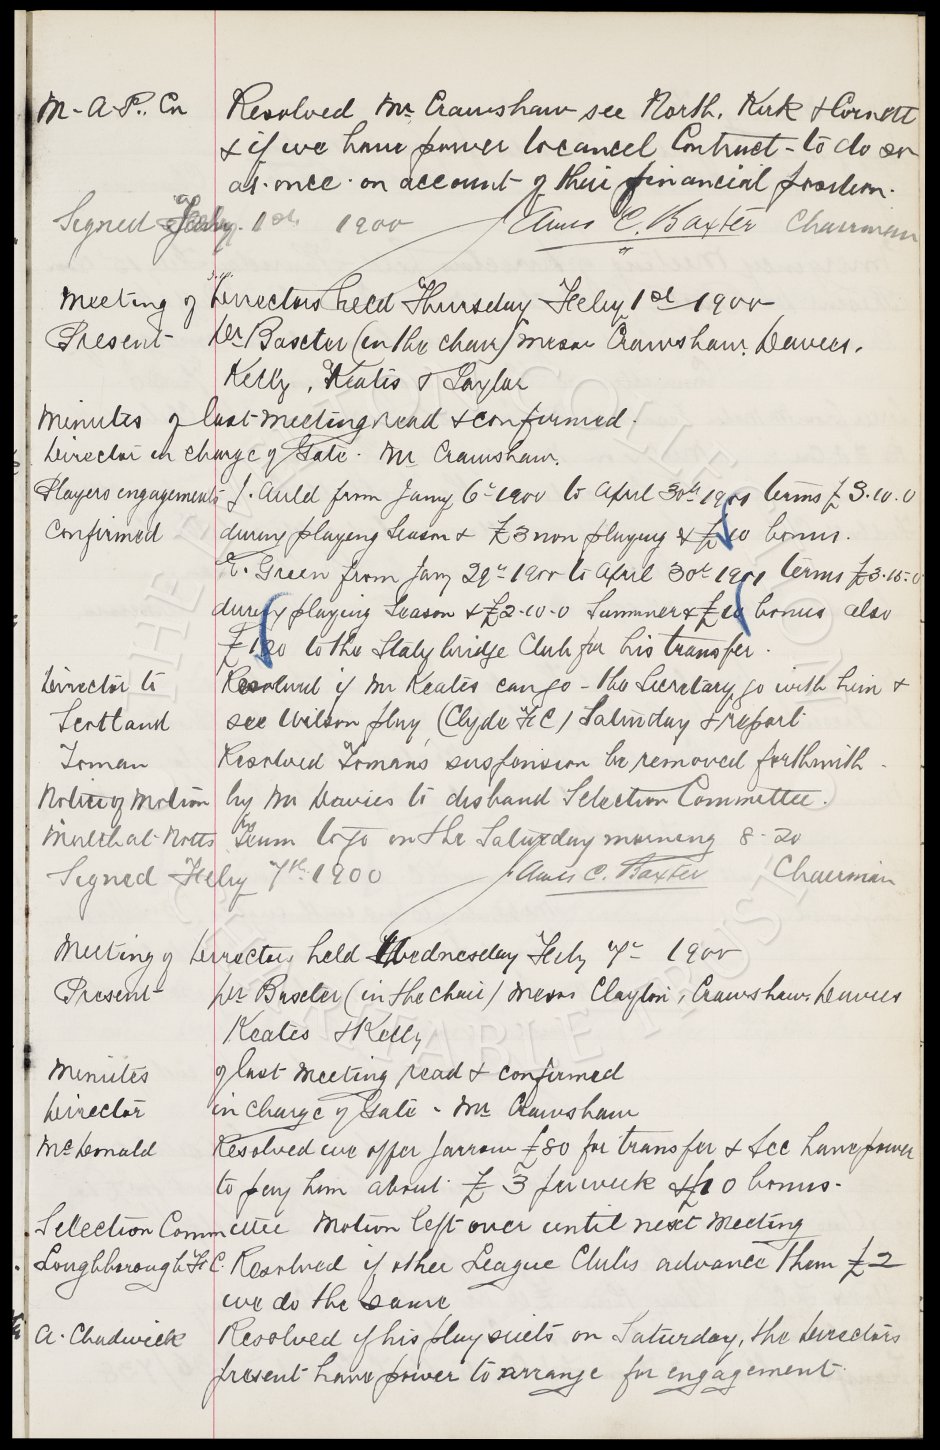 M. A. P. Co Resolved Mr Crawshaw see North, Kirk & Cornett
& if we have power to cancel Contract - to do so
at once on account of their financial position.
Signed Feby. 1st 1900 James C. Baxter Chairman
Meeting of Directors held Thursday Feby 1st 1900
Present Dr Baxter (in the chair) Messrs Crawshaw, Davies,
Kelly, Keates & Taylor
Minutes of last meeting read & confirmed.
Director in charge of Gate. Mr Crawshaw.
Players engagements J. Auld from Jany 6th 1900 to April 30th 1901 terms £3.10.0
confirmed during playing season & £3 non playing & £10 bonus.
E. Green from Jany 29th 1900 to April 30th 1901 terms £3.10.0
during playing season & £2.10.0 Summer & £10 bonus also
£120 to the Stalybridge Club for his transfer.
Director to Resolved if Mr Keates can go - the Secretary go with him &
Scotland see Wilson play (Clyde F C) Saturday & report
Toman Resolved Toman's suspension be removed forthwith.
Notice of Motion by Mr Davies to disband Selection Committee.
Match at Notts Team to go on the Saturday morning 8-20
Signed Feby 7th 1900 James C. Baxter Chairman
Meeting of Directors held Wednesday Feby 7th 1900
Present Dr Baxter (in the chair) Messrs Clayton, Crawshaw, Davies
Keates & Kelly
Minutes of last meeting read & confirmed
Director in charge of Gate - Mr Crawshaw
McDonald Resolved we offer Jarrow £80 for transfer & Sec have power
to pay him about £3 per week & £10 bonus.
Selection Committee Motion left over until next Meeting
Loughborough F C. Resolved if other League Clubs advance them £2
we do the same
A. Chadwick Resolved if his play suits on Saturday, the Directors
present have power to arrange for engagement.